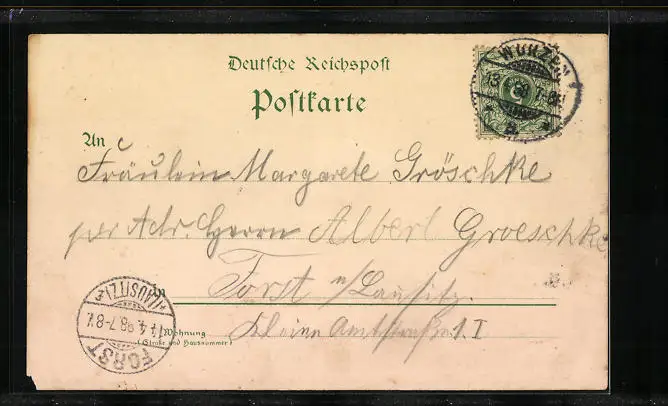 Deutsche Reichspost
Postkarte
WURZEN
An
Fräulein Margarete Gröschke
per Adr. Herrn Albert Groeschke
Forst n/Lausitz.
Wohnung
(Straße und Hausnummer)
Kleine Amtstraße 1. I
(LAUSITZ)
4.98.7-8V
FORST